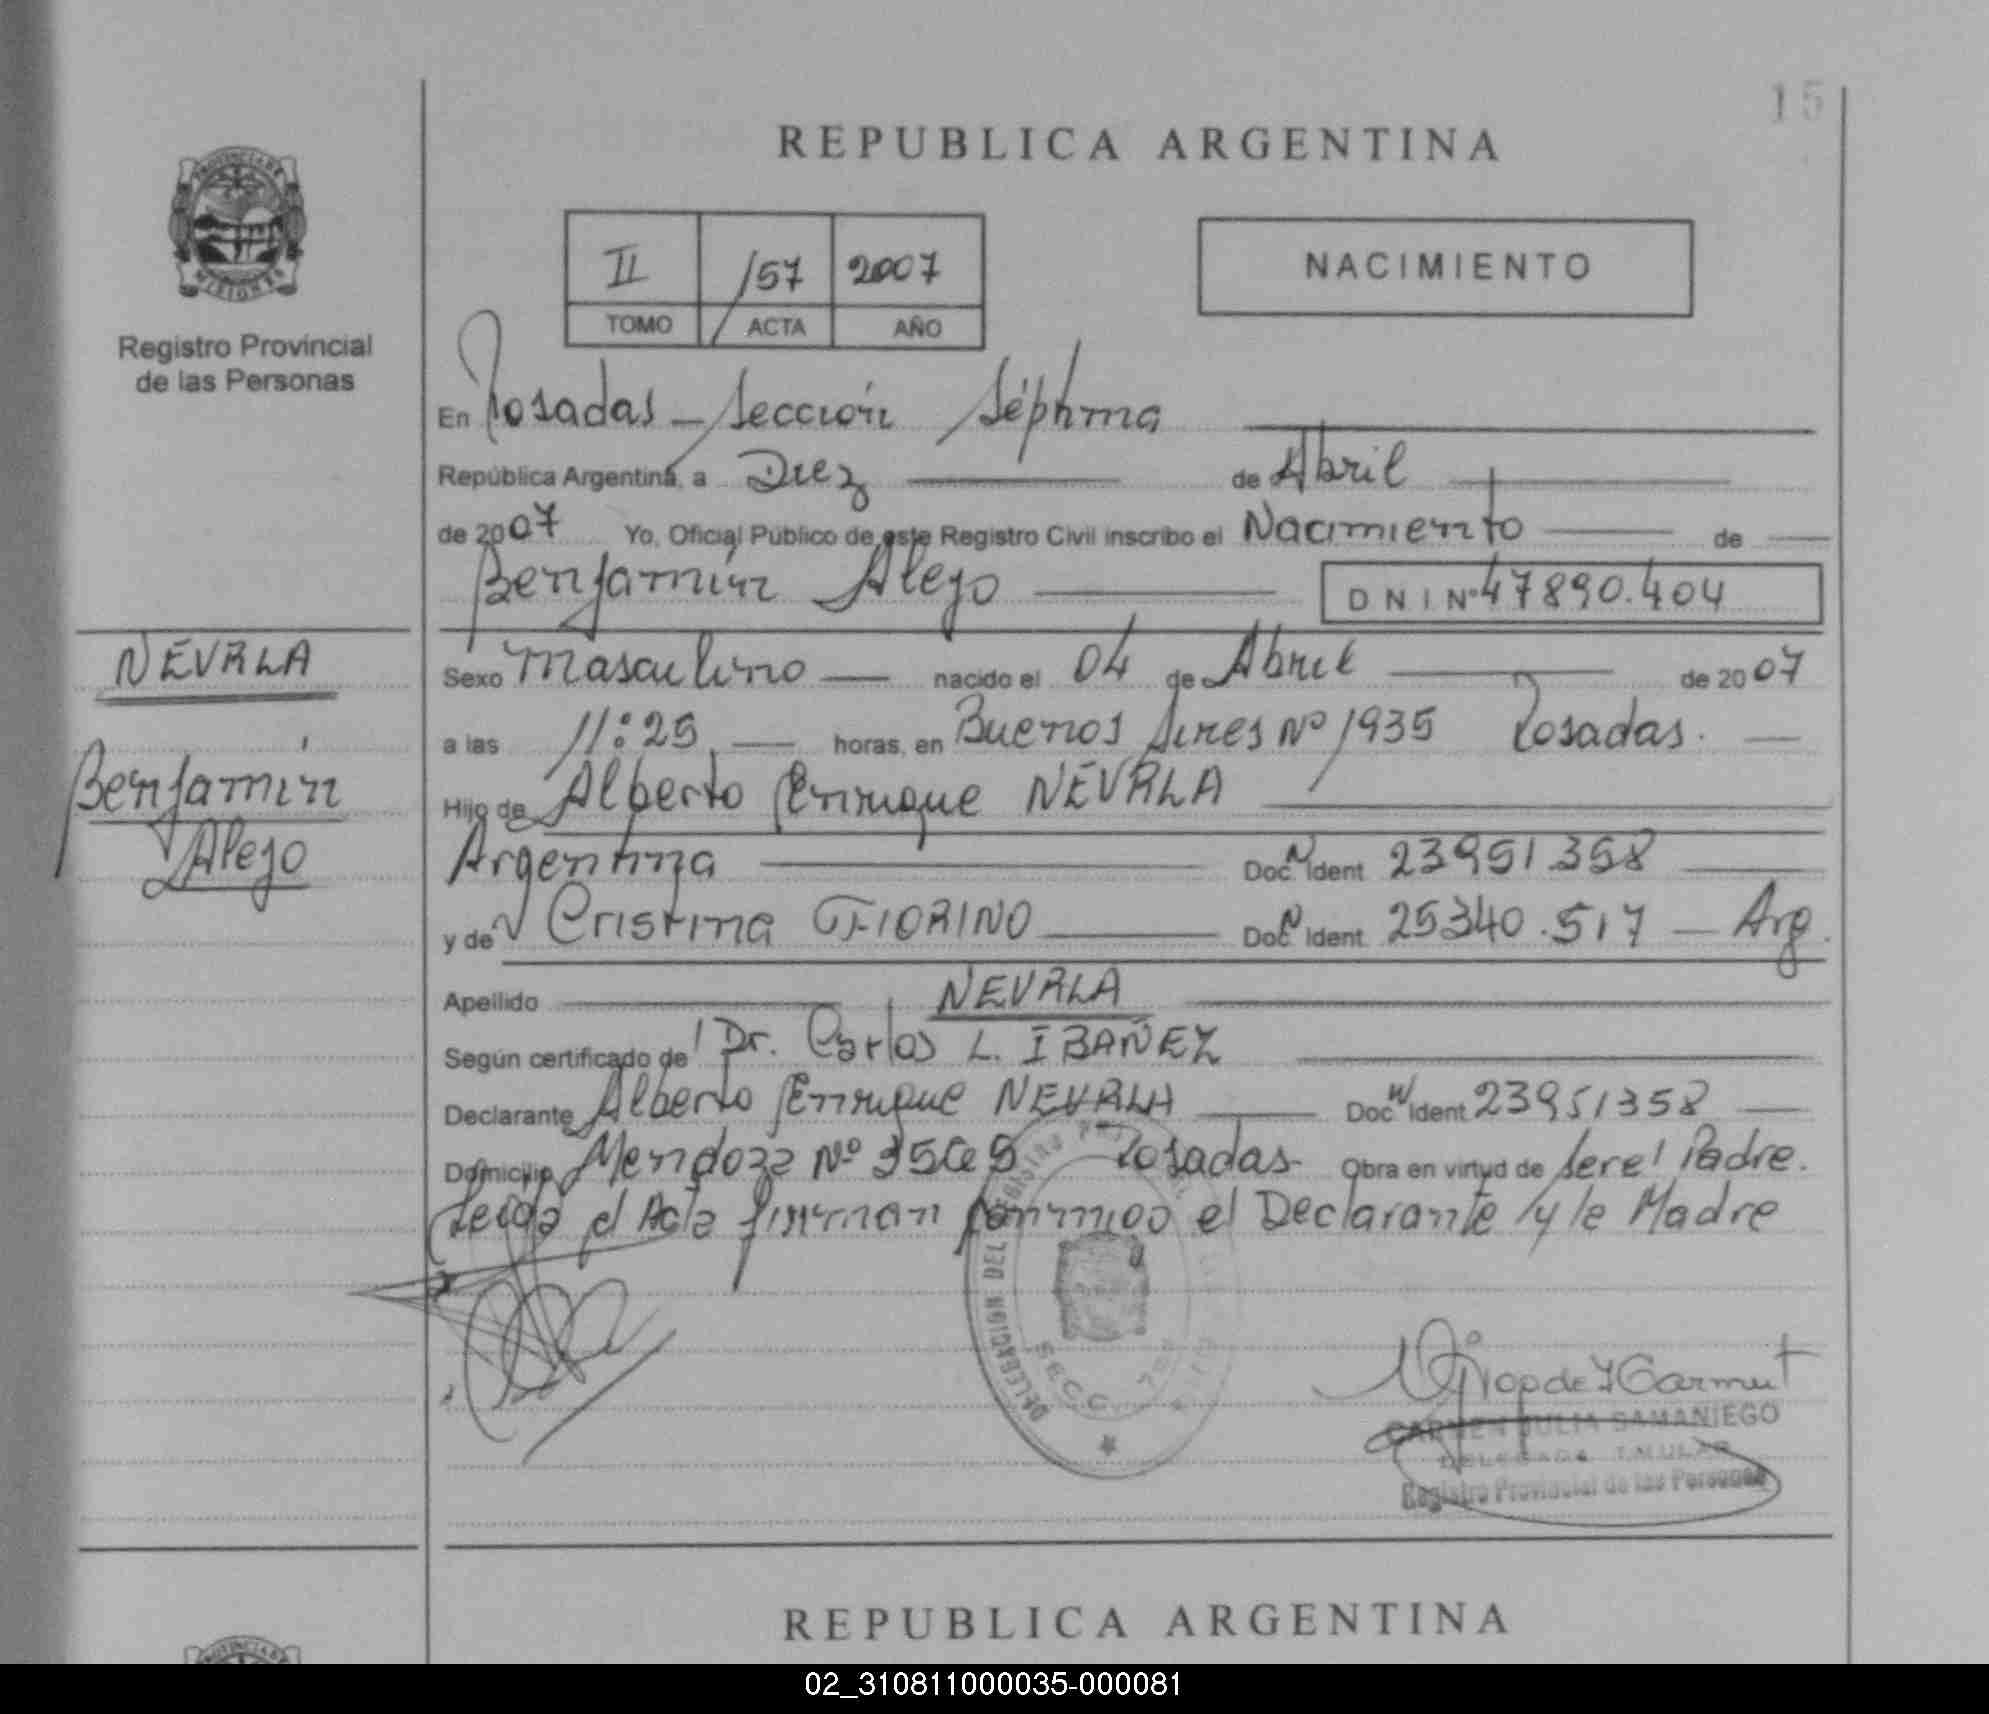 15
REPUBLICA ARGENTINA
PROVINCIA DE
MISIONES
Registro Provincial
de las Personas
II /57 2007
TOMO ACTA AÑO
NACIMIENTO
En Posadas - Sección Séptima
República Argentina, a Diez de Abril
de 2007 Yo, Oficial Público de este Registro Civil inscribo el Nacimiento de
Benjamín Alejo DNI Nº 47890.404
NEVRLA
Benjamín
Alejo
Sexo Masculino nacido el 04 de Abril de 2007
a las 11:25 horas, en Buenos Aires Nº 1935 Posadas.
Hijo de Alberto Enrique NEVRLA
Argentina Doc. N Ident 23951.358
y de Cristina FIORINO Doc. N Ident 25340.517 - Arg.
Apellido NEVRLA
Según certificado de Dr. Carlos L. IBAÑEZ
Declarante Alberto Enrique NEVRLA Doc. N Ident 23951358
Domicilio Mendoza Nº Posadas Obra en virtud de ser el Padre.
Leída el Acta firman conmigo el Declarante y la Madre
DELEGACION DEL REGISTRO
SECC. 7
CARMEN JULIA SAMANIEGO
DELEGADA TITULAR
Registro Provincial de las Personas
REPUBLICA ARGENTINA
02_310811000035-000081